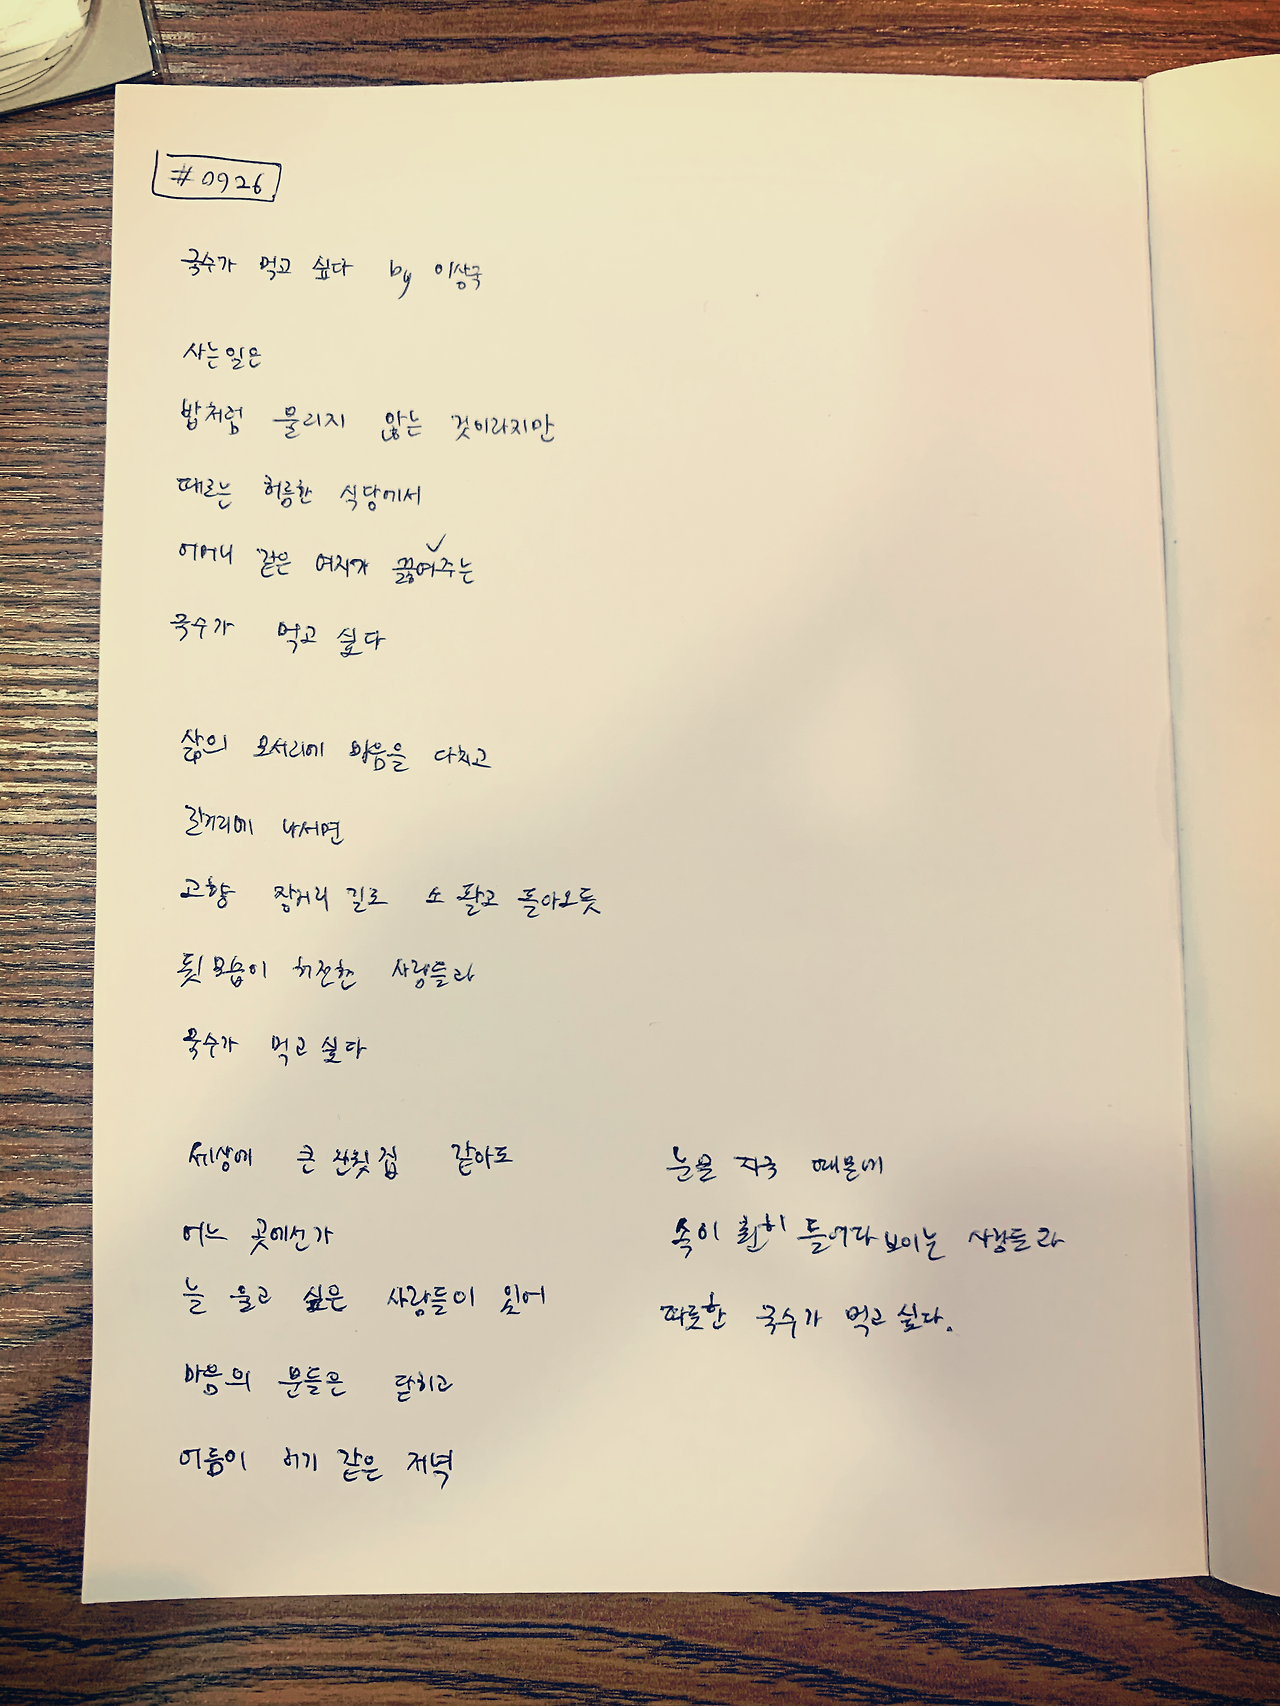 #0926
국수가 먹고 싶다 by 이상국
사는일은
밥처럼 물리지 않는 것이라지만
때로는 허름한 식당에서
어머니 같은 여자가 끓여주는
국수가 먹고 싶다
삶의 모서리에 마음을 다치고
길거리에 나서면
고향 장거리 길로 소 팔고 돌아오듯
뒷모습이 허전한 사람들과
국수가 먹고 싶다
세상에 큰 잔칫집 같아도
어느 곳에선가
늘 울고 싶은 사람들이 있어
마음의 문들은 닫히고
어둠이 허기 같은 저녁
눈물 자국 때문에
속이 훤히 들여다 보이는 사람들과
따뜻한 국수가 먹고 싶다.